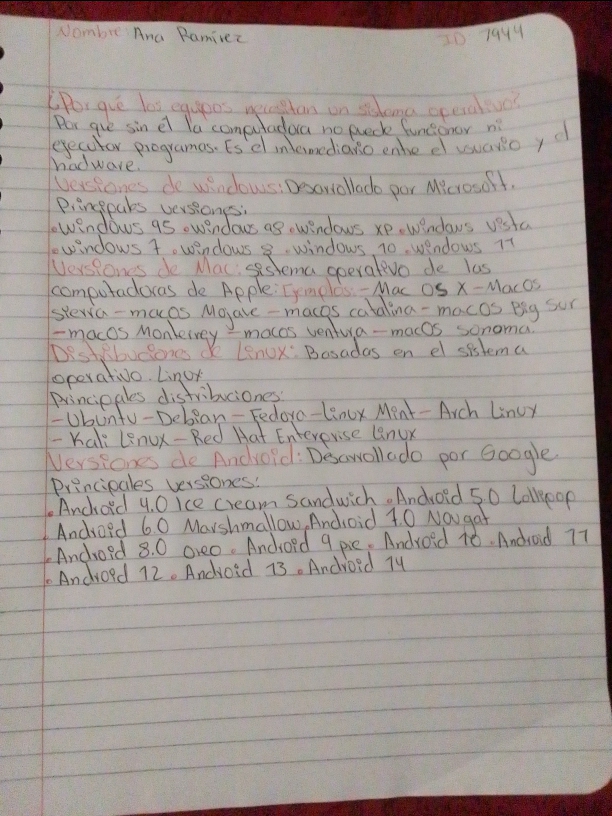 Nombre: Ana Ramírez ID 7944
¿Por qué los equipos necesitan un sistema operativo?
Por que sin él la computadora no puede funcionar ni
ejecutar programas. Es el intermediario entre el usuario y el
hadware.
Versiones de windows: Desarrollado por Microsoft.
Principales versiones:
.windows 95 .windows 98 .windows XP .windows vista
.windows 7 .windows 8 .windows 10 .windows 11
Versiones de Mac: sistema operativo de las
computadoras de Apple: Ejemplos:-Mac OS X -MacOS
sierra -macOS Mojave -macOS catalina -macOS Big Sur
-macOS Monterrey -macOS ventura -macOS sonoma.
Distribuciones de Linux: Basadas en el sistema
operativo Linux
Principales distribuciones:
-Ubuntu -Debian -Fedora -Linux Mint -Arch Linux
-Kali Linux -Red Hat Enterprise Linux
Versiones de Android: Desarrollado por Google.
Principales versiones:
.Android 4.0 Ice cream Sandwich .Android 5.0 Lollipop
.Android 6.0 Marshmallow .Android 7.0 Nougat
.Android 8.0 oreo .Android 9 pie .Android 10 .Android 11
.Android 12 .Android 13 .Android 14